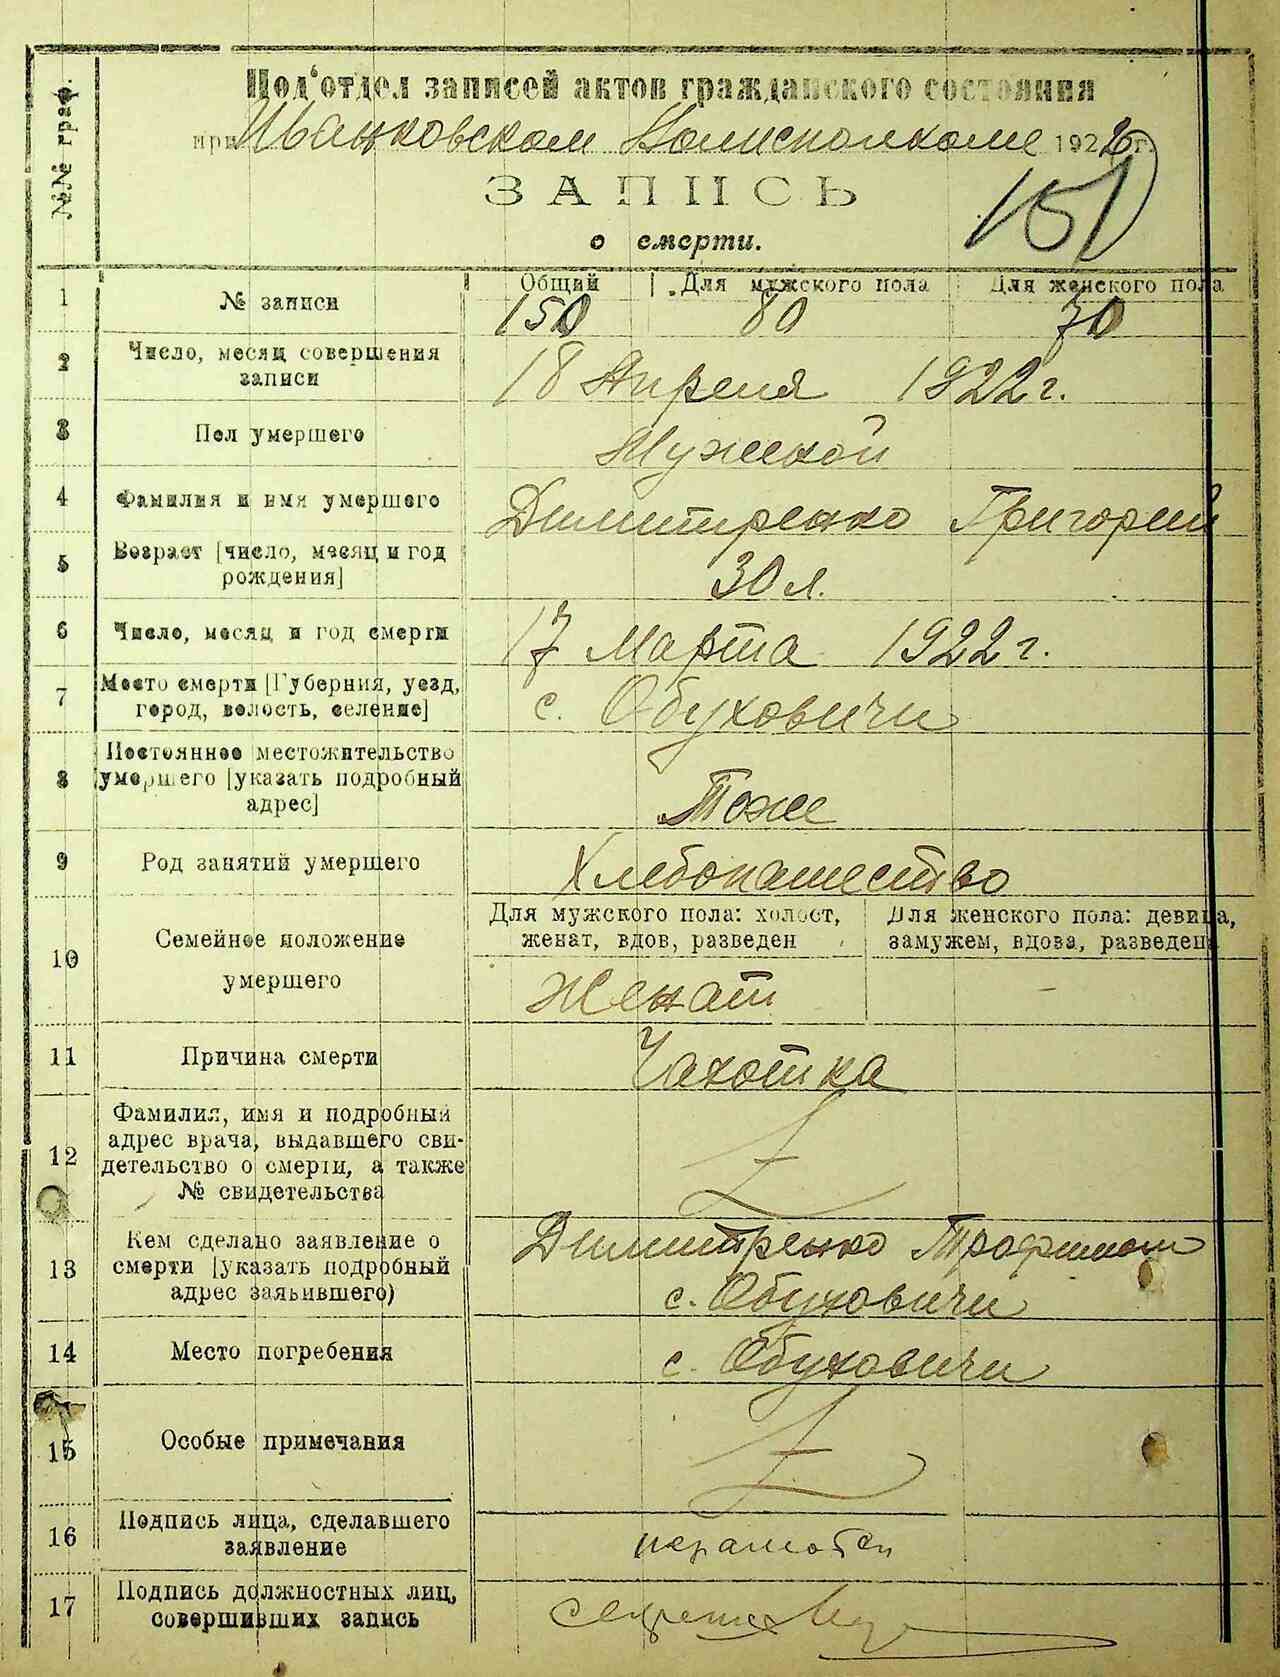 №№ граф.
Под'отдел записей актов гражданского состояния
при Иванковском Волисполкоме 1922 г.
151
ЗАПИСЬ
о смерти.
1
№ записи
Общий
Для мужского пола
Для женского пола
150
80
70
2
Число, месяц совершения
записи
18 Апреля 1922 г.
3
Пол умершего
Мужской
4
Фамилия и имя умершего
Димитренко Григорий
5
Возраст [число, месяц и год
рождения]
30 л.
6
Число, месяц и год смерти
17 Марта 1922 г.
7
Место смерти [Губерния, уезд,
город, волость, селение]
с. Обуховичи
8
Постоянное местожительство
умершего [указать подробный
адрес]
Тоже
9
Род занятий умершего
Хлебопашество
10
Семейное положение
умершего
Для мужского пола: холост,
женат, вдов, разведен
Для женского пола: девица,
замужем, вдова, разведена
Женат
-
11
Причина смерти
Чахотка
12
Фамилия, имя и подробный
адрес врача, выдавшего сви-
детельство о смерти, а также
№ свидетельства
13
Кем сделано заявление о
смерти [указать подробный
адрес заявившего)
Димитренко Трофимом
с. Обуховичи
14
Место погребения
с. Обуховичи
15
Особые примечания
16
Подпись лица, сделавшего
заявление
неграмотен
17
Подпись должностных лиц,
совершивших запись